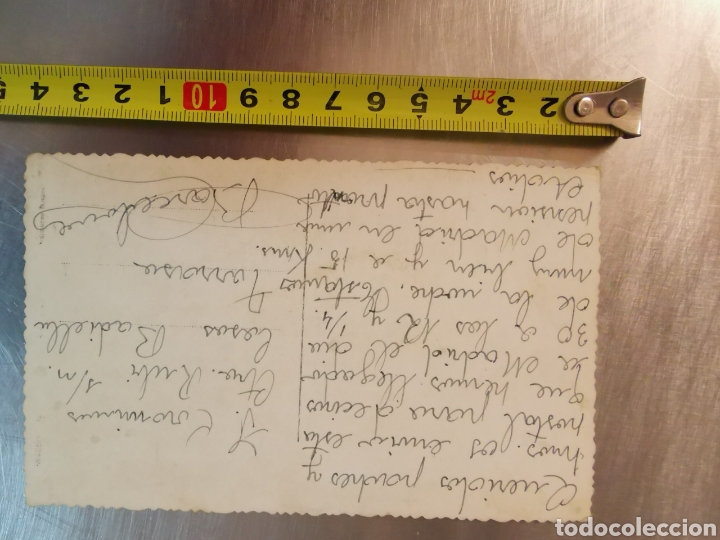 Queridos padres y
hnos. les envio esta
postal para deciros
que hemos llegado
a Madrid el dia
30 a las 12 y 1/4.
de la noche. Estamos
muy bien y a 15. Kms.
de Madrid en una
pension hasta pronto
Adios
J. Corominas
Ctra. Rubi s/n.
Casas Badiella
Tarrasa
Barcelona
2m
1 2 3 4 5 6 7 8 9 10 1 2 3 4 5
todocoleccion
todocoleccion.net